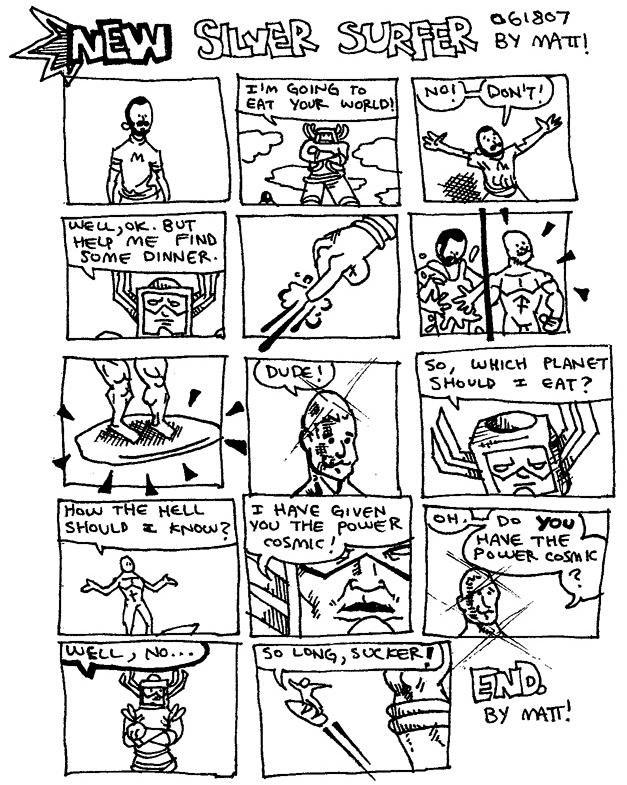 NEW SILVER SURFER
061807
BY MATT!
M
I'M GOING TO
EAT YOUR WORLD!
NO! DON'T!
M
WELL, OK. BUT
HELP ME FIND
SOME DINNER.
DUDE!
SO, WHICH PLANET
SHOULD I EAT?
HOW THE HELL
SHOULD I KNOW?
I HAVE GIVEN
YOU THE POWER
COSMIC!
OH. DO YOU
HAVE THE
POWER COSMIC
?
WELL, NO...
SO LONG, SUCKER!
END.
BY MATT!